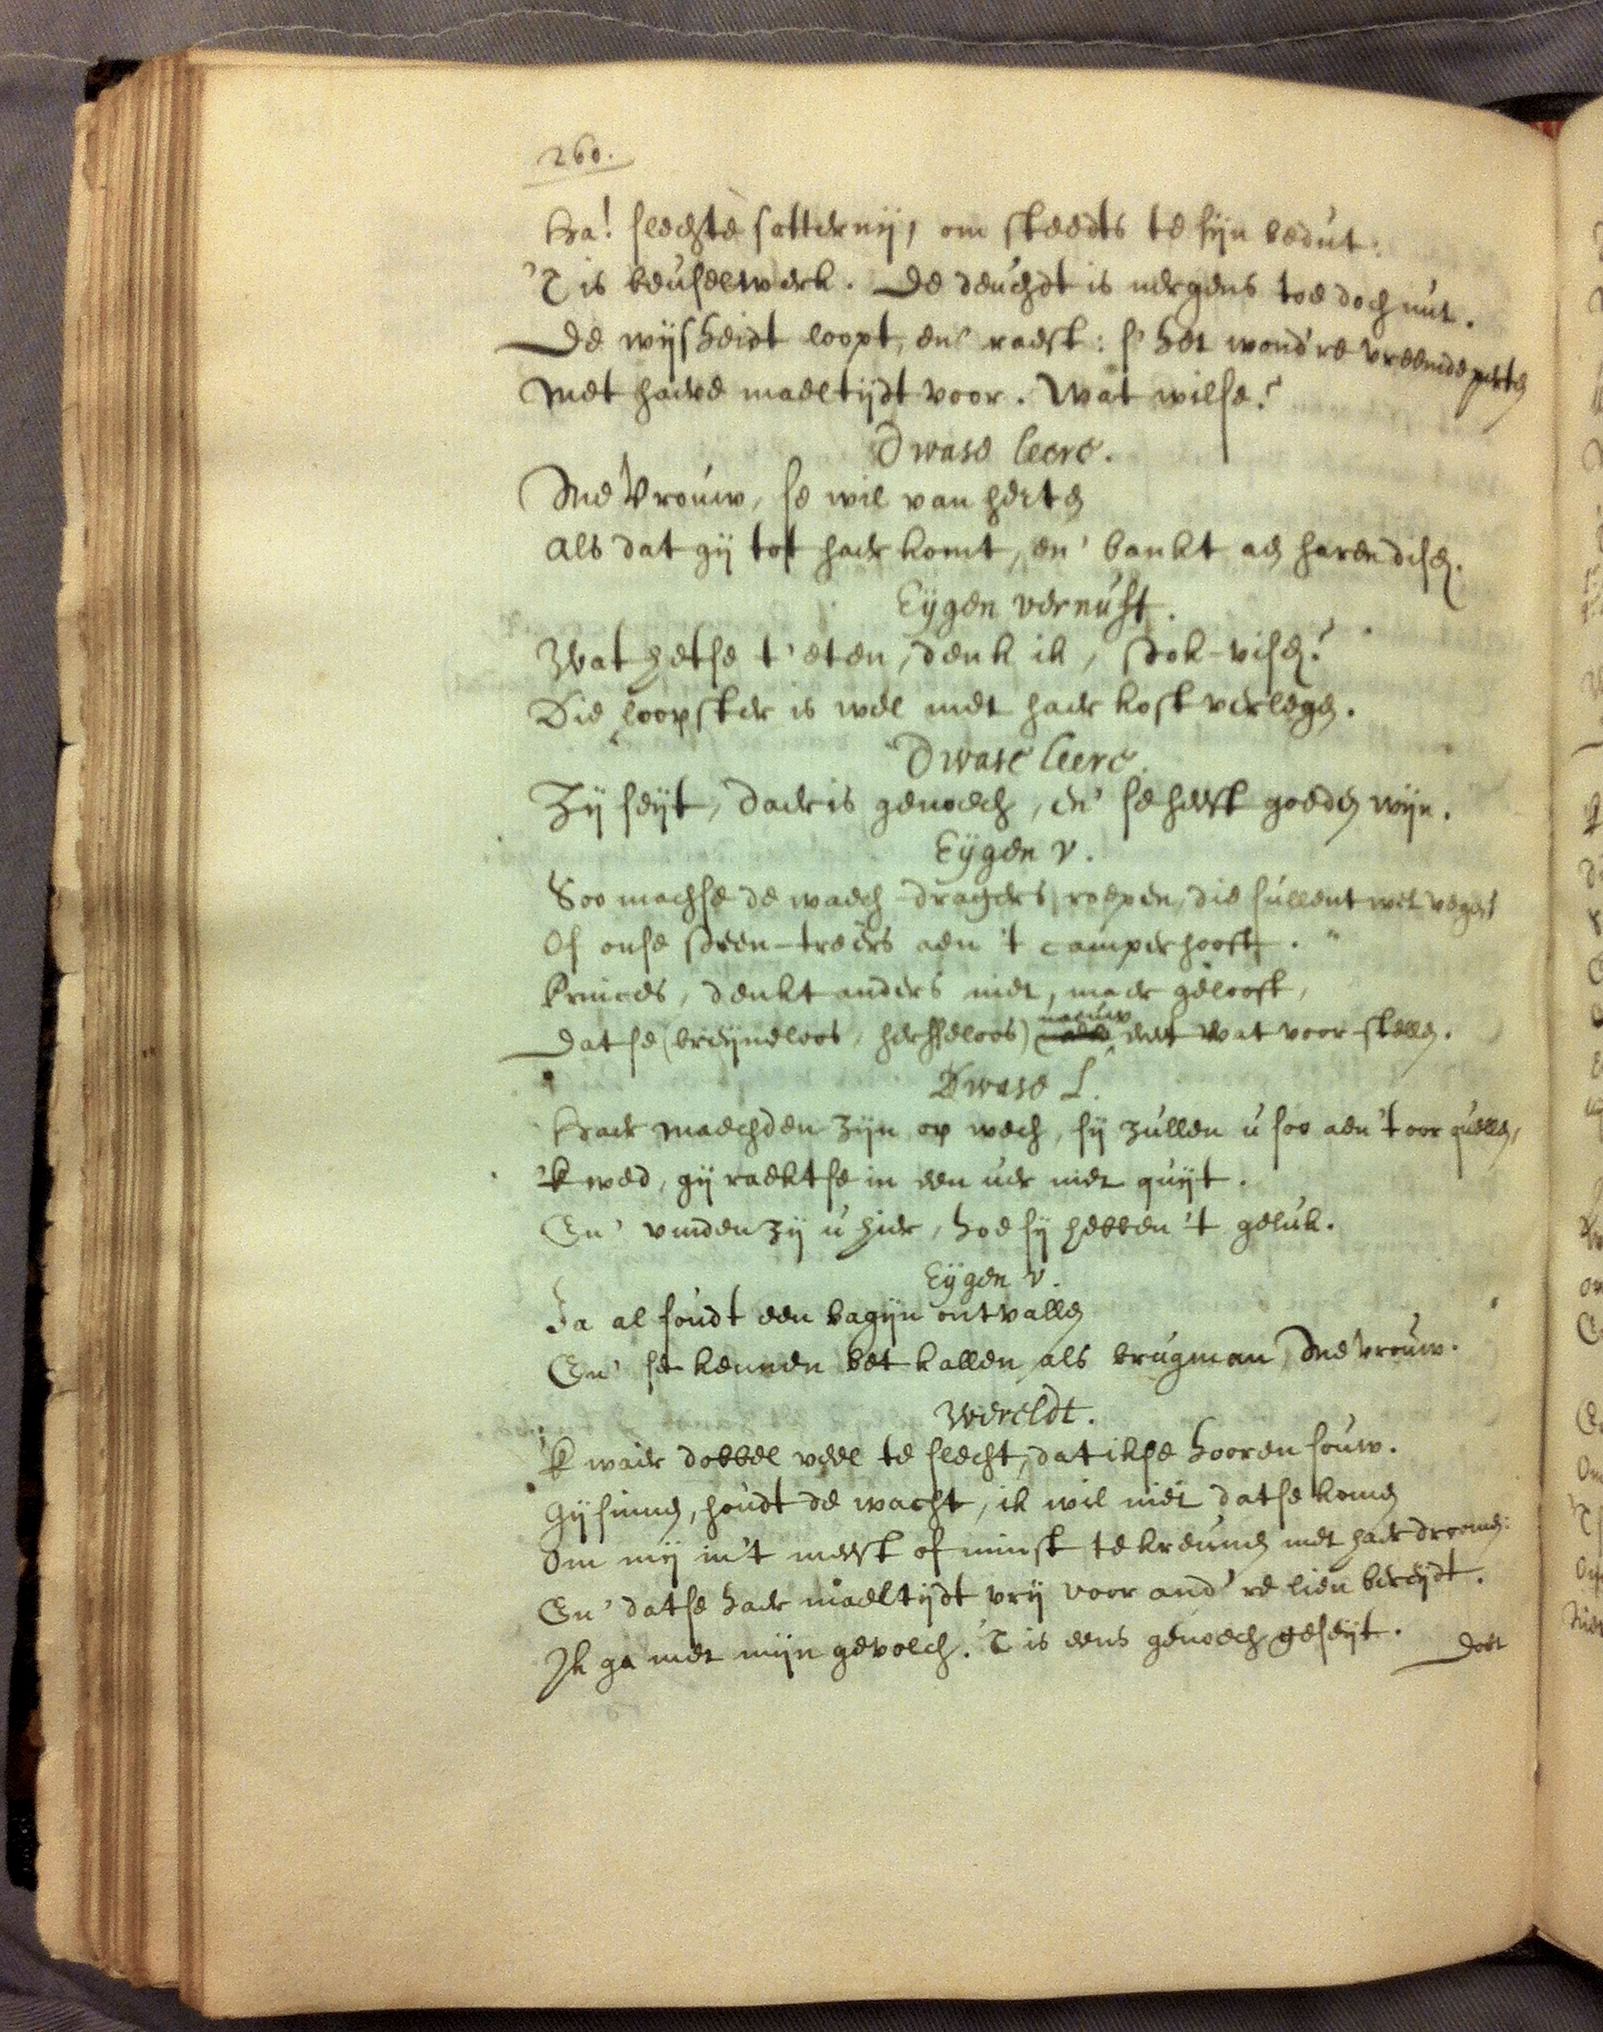 260.
Ha! slechte sotterny, om steedts te syn bedut.
'T is beuselwerk. De deuchdt is nergens toe doch nut.
De wijsheidt loopt, en' raest: s' het wond're vreemde perten
Met haere maeltijdt voor. Wat wilse?
Dwase leere.
Me Vrouw, se wil van herten
Als dat gij tot haer komt, en' bankt aen haren disch.
Eygen vernuft.
Wat hetse t'eten, denk ik, stok-visch?
Die loopster is wel met haer kost verlegen.
Dwase leere.
Zij seyt, daer is genoech, en' se heeft goeden wijn.
Eygen v.
Soo machse de waech-dragers roepen, die sullent wel vegen
Of onse steen-treers aen 't camperhooft.
Princes, denkt anders niet, maer gelooft,
Datse (breyneloos, herseloos) nauw eet wat voor stellen.
Dwase L.
Haer maechden zijn op wech, sij zullen u soo aen 't oor quellen,
'K wed, gij raektse in een uer niet quijt.
En' vinden zij u hier, hoe sij hebben 't geluk.
Eygen v.
Ja al soudt een bagijn ontvallen
En' se kennen bet kallen als brugman, Me Vrouw.
Wereldt.
'K waer dobbel veel te slecht, dat ikse hooren souw.
Gij sinnen, houdt de wacht, ik wil niet datse komen
Om mij in't meest of minst te kreunen met haer droomen:
En' datse haer maeltijdt vrij voor and're lien bereijdt.
Ik ga met mijn gevolch. 'T is eens genoech geseijt.
Doet